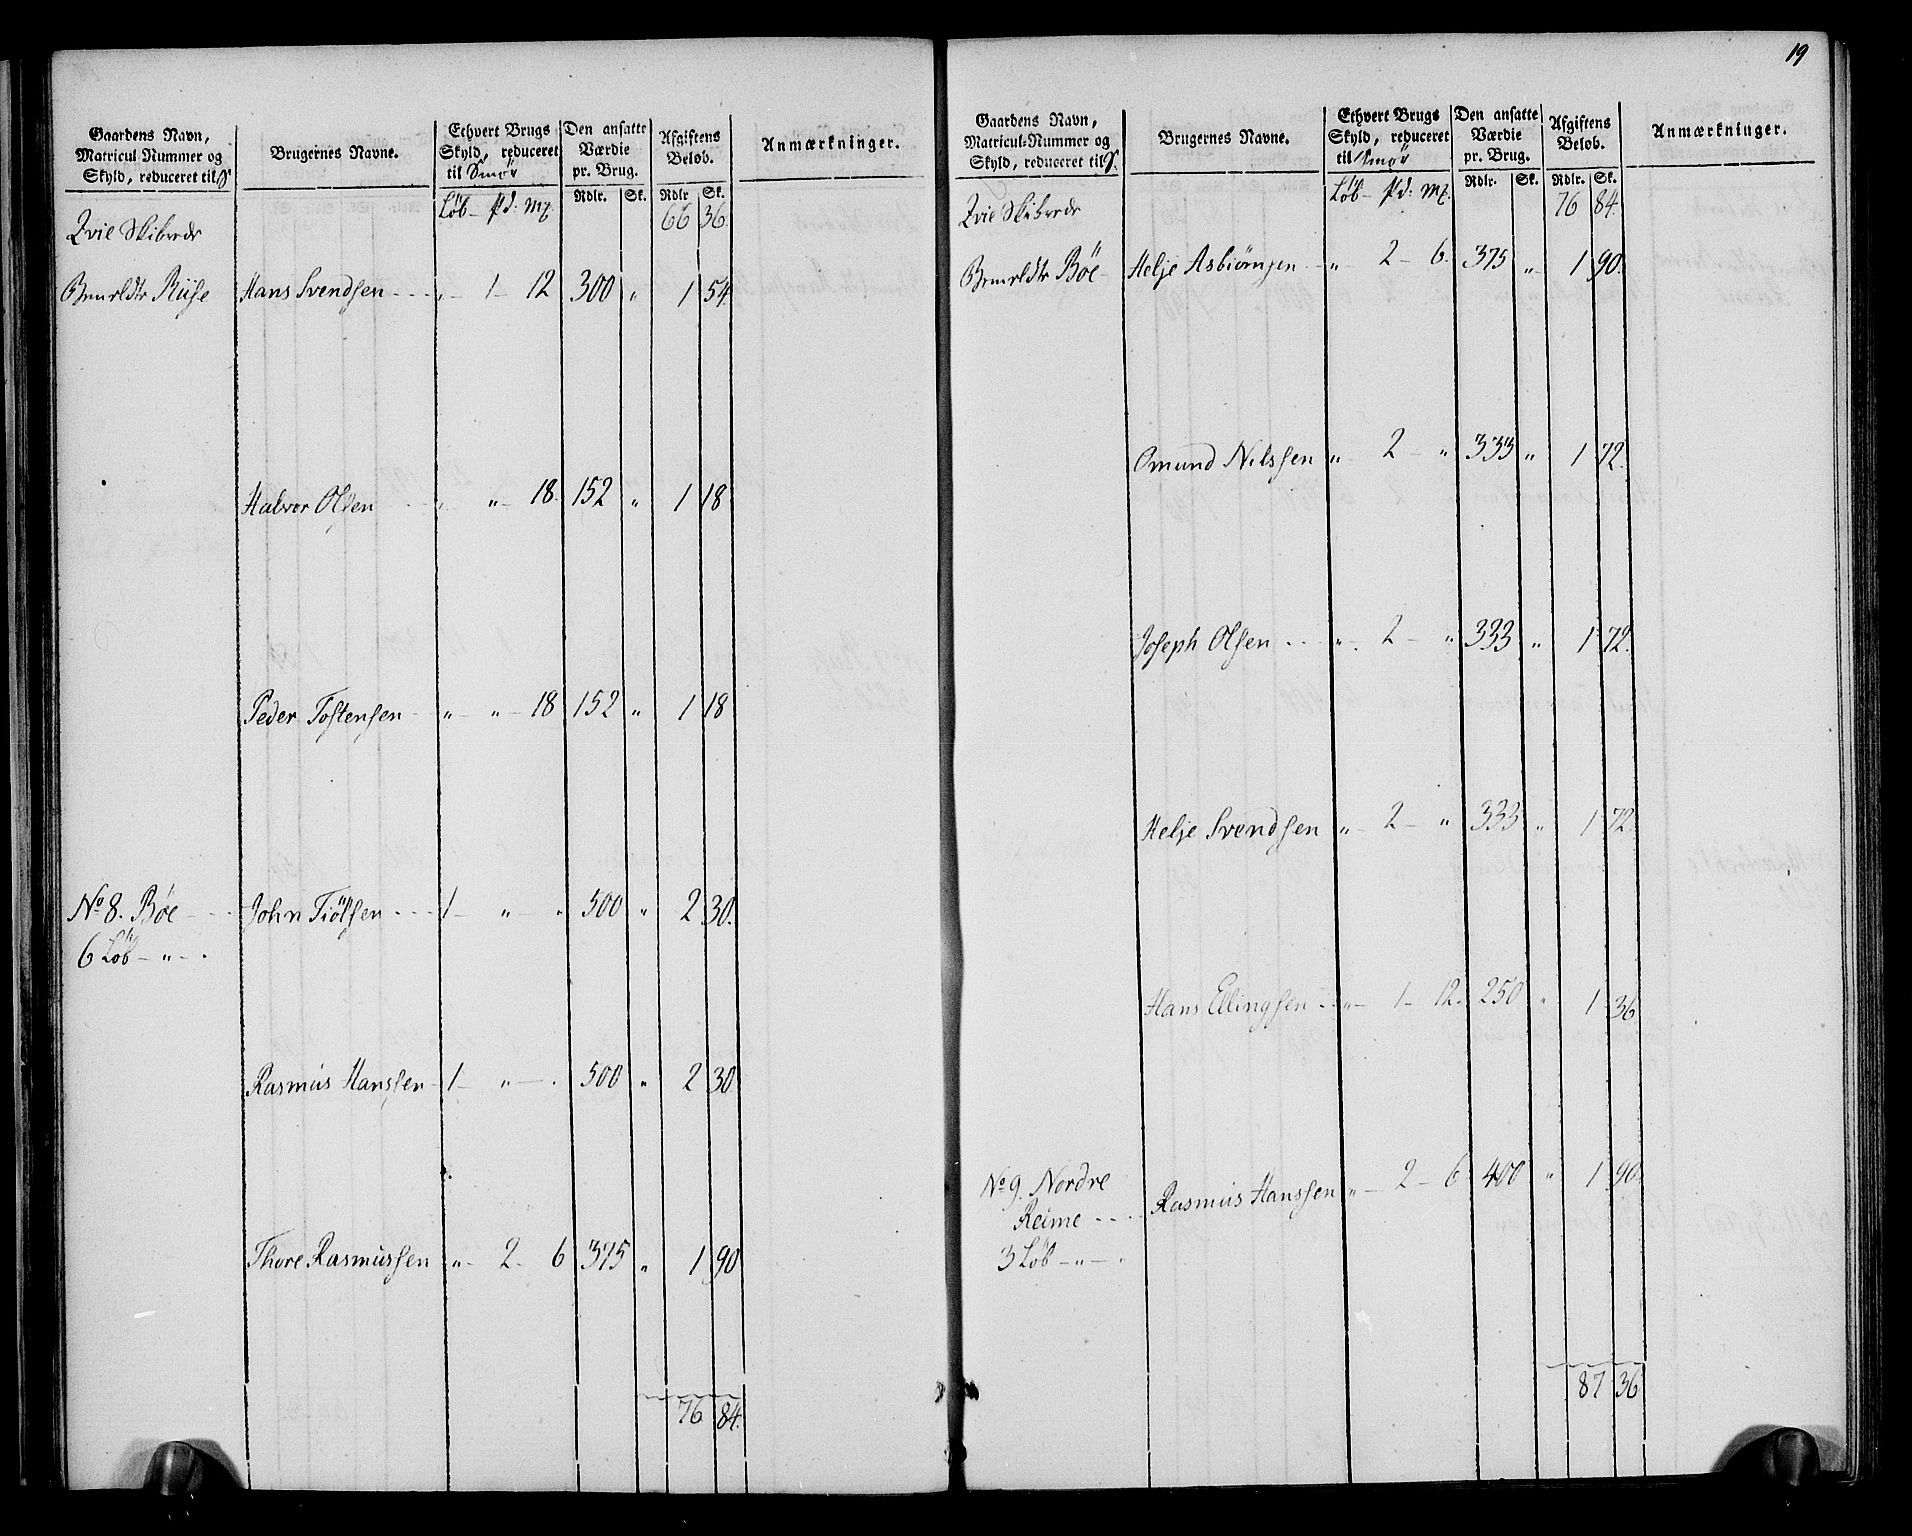 19
Gaardens Navn,
Matricul Nummer og
Skyld, reduceret til
Brugernes Navne.
Ethvert Brugs
Skyld, reduceret
til Smör
Den ansatte
Værdie
pr. Brug.
Afgiftens
Beløb.
Anmærkninger.
Löb - pd: mk
Rdlr. Sk. Rdlr Sk.
66 36.
Skibrede
Riise Hans Svendsen - - - „ - 1 - 12 300 „ 1 54.
Halvor Olsen - - - „ „ - 18. 152 „ 1 18
Peder Tostensen - „ - „ - 18 152 „ 1 18
No 8. Bøe - - - John Tiölsen - - - 1 - „ - „ 500 „ 2 30.
6 Löb - „ - .
Rasmus Hanssen - 1 - „ - . 500 „ 2 30
Thore Rasmussen „ - 2 - 6 375 „ 1 90
76 84.
Gaardens Navn,
Matricul-Nummer og
Skyld, reduceret til
Brugernes Navne.
Ethvert Brugs
Skyld, reduceret
til Smör
Den ansatte
Værdie
pr. Brug.
Afgiftens
Beløb.
Anmærkninger.
Löb - pd: mk.
Rdlr. Sk. Rdlr. Sk.
76 84.
Skibrede
Bøe - Helje Asbiörnsen - „ - 2 - 6. 375 „ 1 90.
Omund Nilssen „ - 2 - „ 333 „ 1 72.
Joseph Olsen - - - „ - . 2 - „ 333 „ 1 72.
Helje Svendsen „ - 2 - „ 333 „ 1 72
Hans Ellingsen - - „ - 1 - 12. 250 „ 1 36
No 9. Nordre
Reime - - - - Rasmus Hanssen „ - 2 - 6 400 „ 1 90.
3 Löb - „ - „
87 36